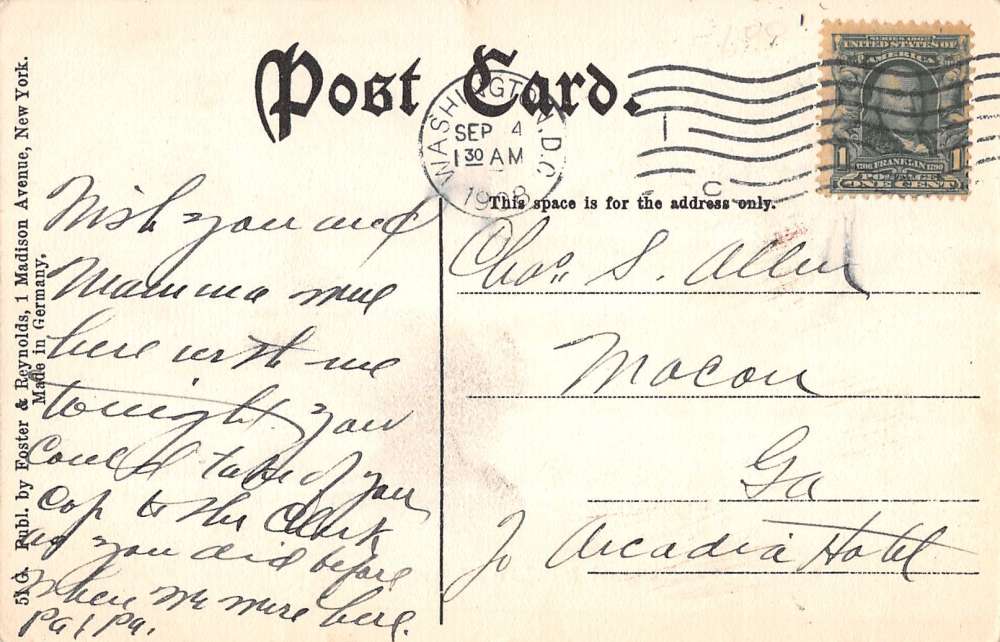 Post Card.
WASHINGTON, D.C.
SEP 4
1 30 AM
1908
C
SERIES 1902
UNITED STATES OF
AMERICA
1
1706 FRANKLIN 1790
1
POSTAGE
ONE CENT
This space is for the address only.
51G. Publ. by Foster & Reynolds, 1 Madison Avenue, New York.
Made in Germany,
Wish you and
Mamma were
here with me
tonight. you
Could take of your
Cap to the Clerk
as you did before
when we were here.
Pa, Pa,
Chas. S. Allen
Macon
Ga
To Arcadia Hotel